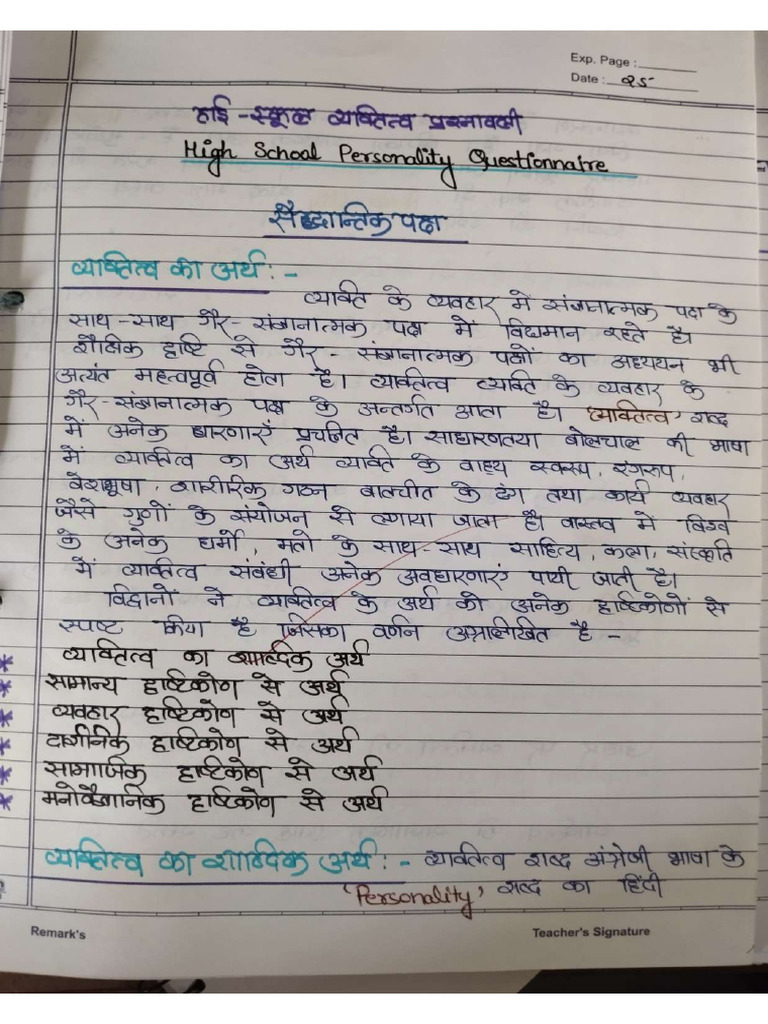 Exp. Page :
Date : 25
हाई-स्कूल व्यक्तित्व प्रश्नावली
High School Personality Questionnaire
सैद्धान्तिक पक्ष
व्यक्तित्व का अर्थ : -
व्यक्ति के व्यवहार में संज्ञानात्मक पक्ष के
साथ-साथ गैर-संज्ञानात्मक पक्ष में विद्यमान रहते है।
शैक्षिक दृष्टि से गैर-संज्ञानात्मक पक्षों का अध्ययन भी
अत्यंत महत्वपूर्व होता है। व्यक्तित्व व्यक्ति के व्यवहार के
गैर-संज्ञानात्मक पक्ष के अन्तर्गत आता है। 'व्यक्तित्व' शब्द
में अनेक धारणाएं प्रचलित है। साधारणतया बोलचाल की भाषा
में व्यक्तित्व का अर्थ व्यक्ति के वाह्य स्वरूप, रंगरुप,
वेशभूषा, शारीरिक गठन बातचीत के ढंग तथा कार्य व्यवहार
जैसे गुणों के संयोजन से लगाया जाता है। वास्तव में विश्व
के अनेक धर्मो, मतो के साथ-साथ साहित्य, कला, संस्कृति
में व्यक्तित्व संबंधी अनेक अवधारणाएं पायी जाती है।
विद्वानों ने व्यक्तित्व के अर्थ को अनेक दृष्टिकोणों से
स्पष्ट किया है जिसका वर्णन अग्रलिखित है -
* व्यक्तित्व का शाब्दिक अर्थ
* सामान्य दृष्टिकोण से अर्थ
* व्यवहार दृष्टिकोण से अर्थ
* दार्शनिक दृष्टिकोण से अर्थ
* सामाजिक दृष्टिकोण से अर्थ
* मनोवैज्ञानिक दृष्टिकोण से अर्थ
व्यक्तित्व का शाब्दिक अर्थ : - व्यक्तित्व शब्द अंग्रेजी भाषा के
'Personality' शब्द का हिंदी
Remark's
Teacher's Signature